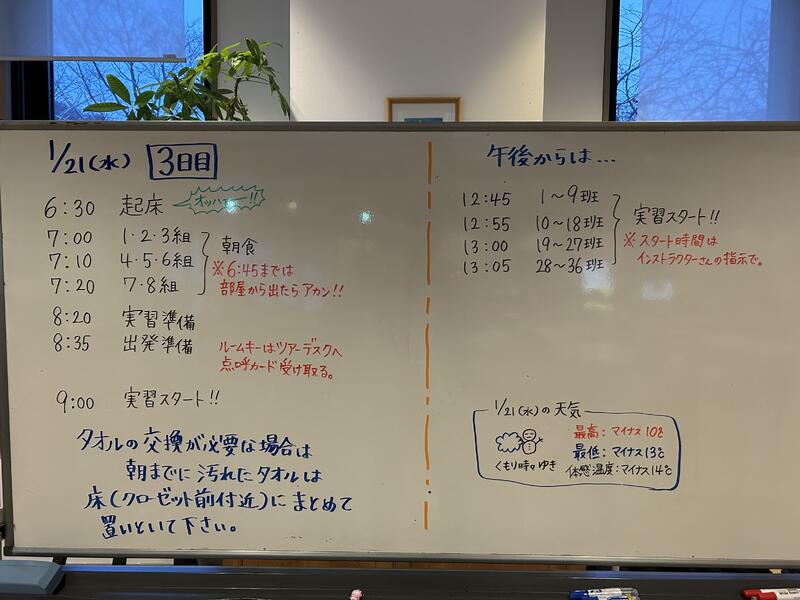 1/21(水) 3日目
6:30 起床 オッハー!!
7:00 1・2・3組
7:10 4・5・6組
7:20 7・8組
朝食
※6:45までは
部屋から出たらアカン!!
8:20 実習準備
8:35 出発準備
ルームキーはツアーデスクへ
点呼カード受け取る。
9:00 実習スタート!!
タオルの交換が必要な場合は
朝までに汚れたタオルは
床(クローゼット前付近)にまとめて
置いといて下さい。
午後からは…
12:45 1〜9班
12:55 10〜18班
13:00 19〜27班
13:05 28〜36班
実習スタート!!
※スタート時間は
インストラクターさんの指示で。
1/21(水)の天気
くもり時々ゆき
最高:マイナス10℃
最低:マイナス13℃
体感温度:マイナス14℃